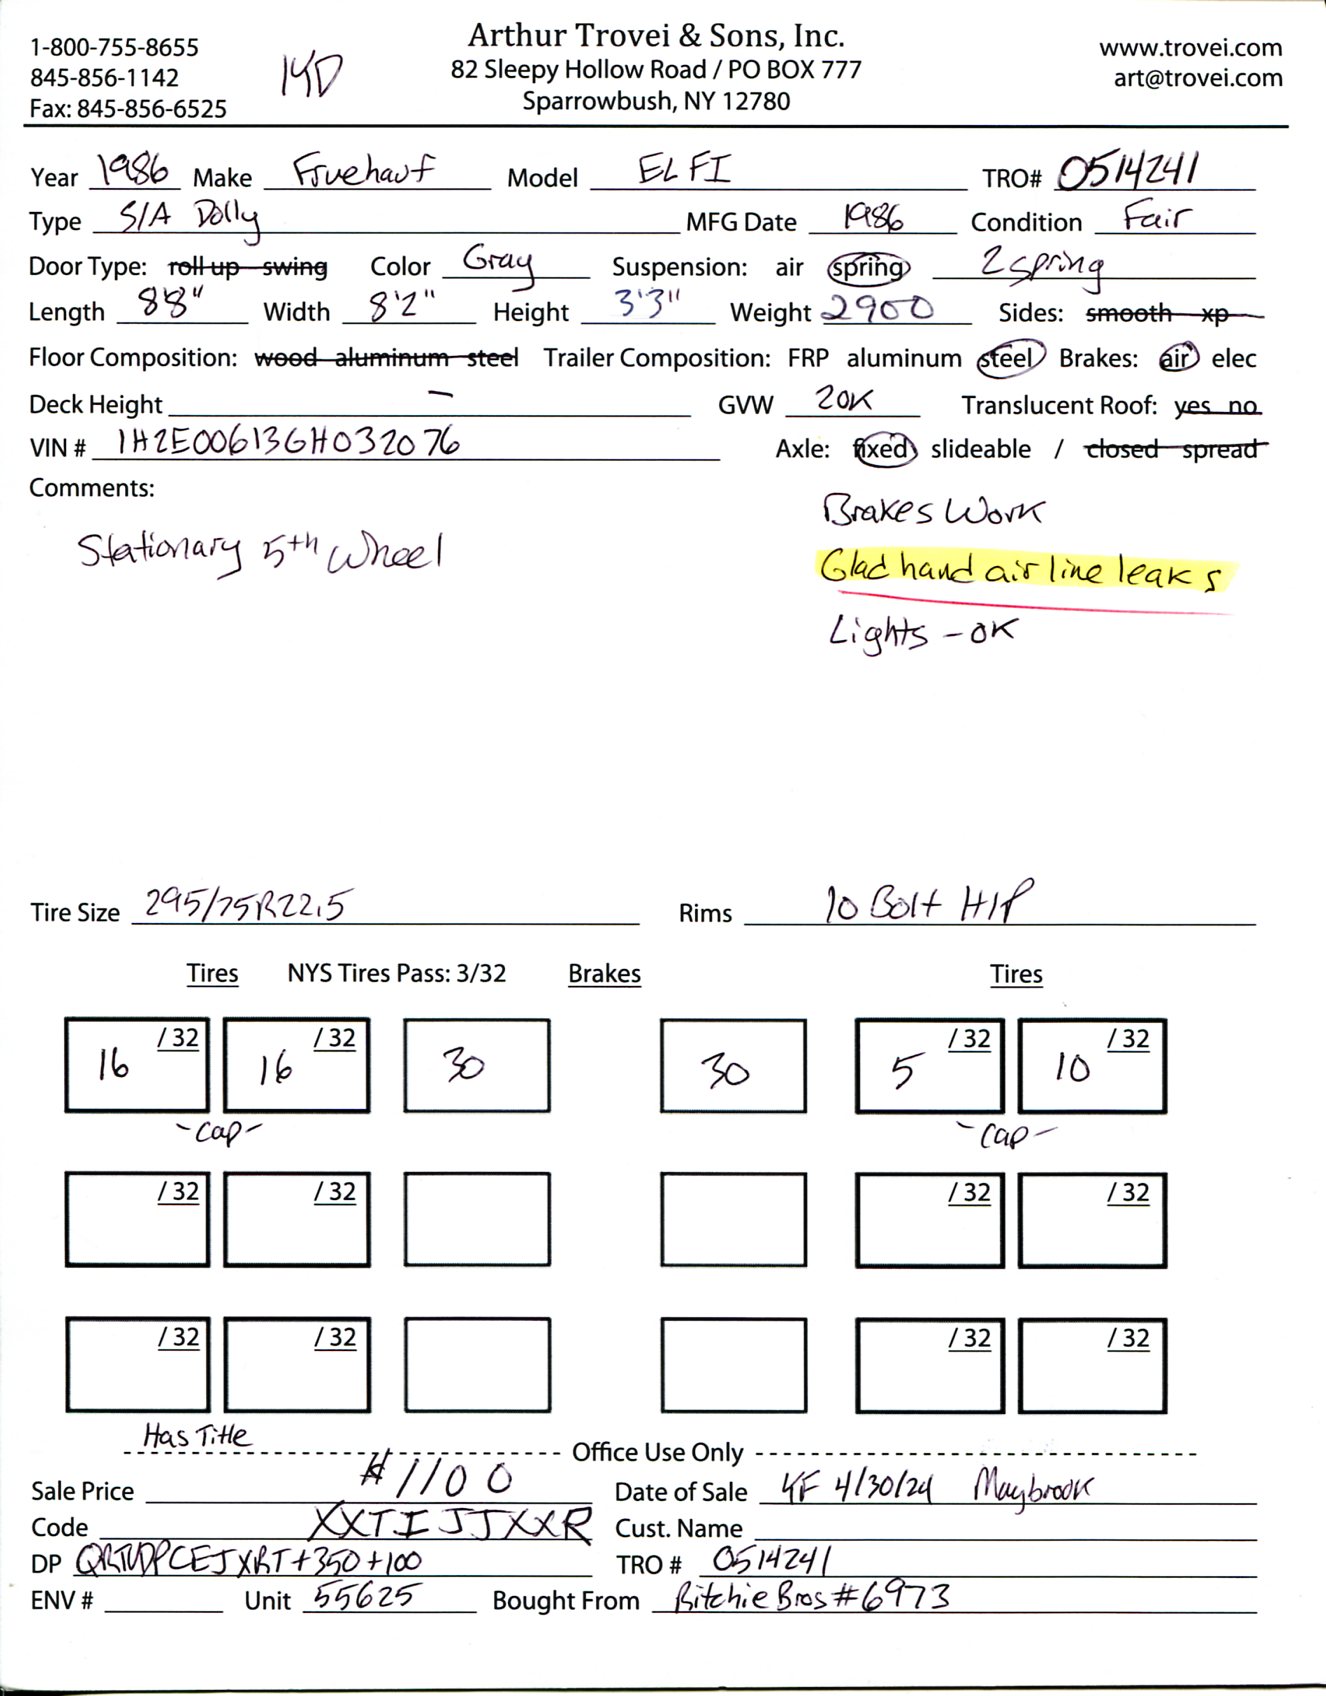 1-800-755-8655
845-856-1142
Fax: 845-856-6525
Arthur Trovei & Sons, Inc.
82 Sleepy Hollow Road / PO BOX 777
Sparrowbush, NY 12780
www.trovei.com
art@trovei.com
Year 1986 Make Fruehauf Model ELFI TRO# 0514241
Type S/A Dolly MFG Date 1986 Condition Fair
Door Type: roll up swing Color Gray Suspension: air spring 2 spring
Length 8'8" Width 8'2" Height 3'3" Weight 2900 Sides: smooth xp
Floor Composition: wood aluminum steel Trailer Composition: FRP aluminum steel Brakes: air elec
Deck Height — GVW 20K Translucent Roof: yes no
VIN # 1H2E00613GH032076 Axle: fixed slideable / closed spread
Comments:
Brakes Work
Stationary 5th Wheel
Glad hand air line leaks
Lights - OK
Tire Size 295/75R22.5 Rims 10 Bolt H/P
Tires NYS Tires Pass: 3/32 Brakes Tires
16 /32 16 /32 30 30 5 /32 10 /32
- Cap - - Cap -
/32 /32 /32 /32
/32 /32 /32 /32
Has Title
Office Use Only
Sale Price $1100 Date of Sale 4/30/24 Maybrook
Code XXTIJJXXR Cust. Name
DP TRO # 0514241
ENV # Unit 55625 Bought From Ritchie Bros #6973